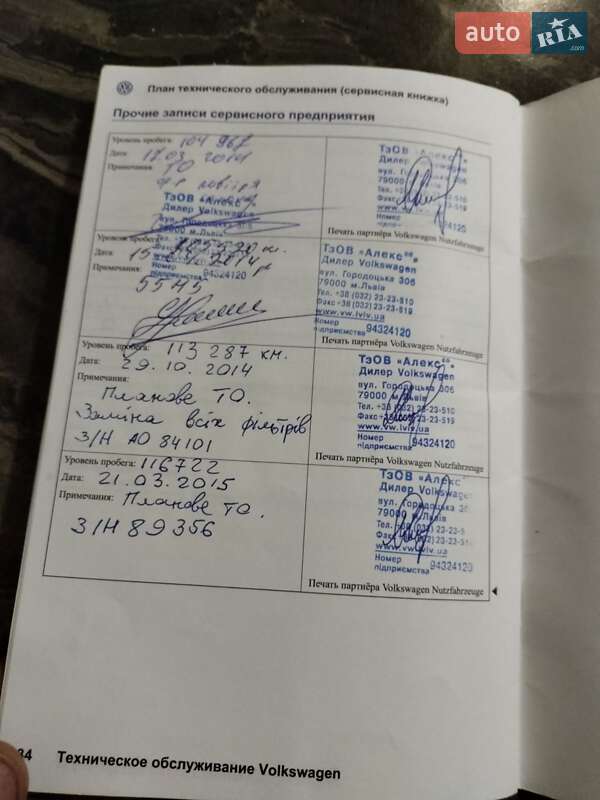 auto RIA .com
План технического обслуживания (сервисная книжка)
Прочие записи сервисного предприятия
Уровень пробега: 104 967
Дата: 17.03 2014
Примечания: ТО
повітря
ТзОВ «Алекс
Дилер Volkswagen
вул. Городоцька
79000 м.Львів
ТзОВ «Алекс"
Дилер Volkswagen
вул. Городоцька 306
79000
Тел.
Факс
www.
Номер
Печать партнёра Volkswagen Nutzfahrzeuge
Уровень пробега: км.
Дата: 15 2014
Примечания:
Номер
підприємства 94324120
5545
ТзОВ «Алекс"
Дилер Volkswagen
вул. Городоцька 306
79000 м.Львів
Тел. +38 (032) 23-23-510
Факс +38 (032) 23-23-519
www.vw.lviv.ua
Номер
підприємства 94324120
Печать партнёра Volkswagen Nutzfahrzeuge
Уровень пробега: 113 287 км.
Дата: 29.10.2014
Примечания:
Планове ТО.
Заміна всіх фільтрів
З/Н АО 84101
ТзОВ «Алекс"
Дилер Volkswagen
вул. Городоцька 306
79000 м.Львів
Тел. +38 (032) 23-23-510
Факс 23-23-519
www.vw.lviv.ua
Номер
підприємства 94324120
Печать партнёра Volkswagen Nutzfahrzeuge
Уровень пробега: 116722
Дата: 21.03.2015
Примечания: Планове ТО.
З/Н 89356
ТзОВ «Алекс"
Дилер Volkswagen
вул. Городоцька
79000 м.Львів
Тел. +38 (032) 23-23-5
Факс (032) 23-23-51
www.vw.lviv.ua
Номер
підприємства 94324120
Печать партнёра Volkswagen Nutzfahrzeuge
34 Техническое обслуживание Volkswagen